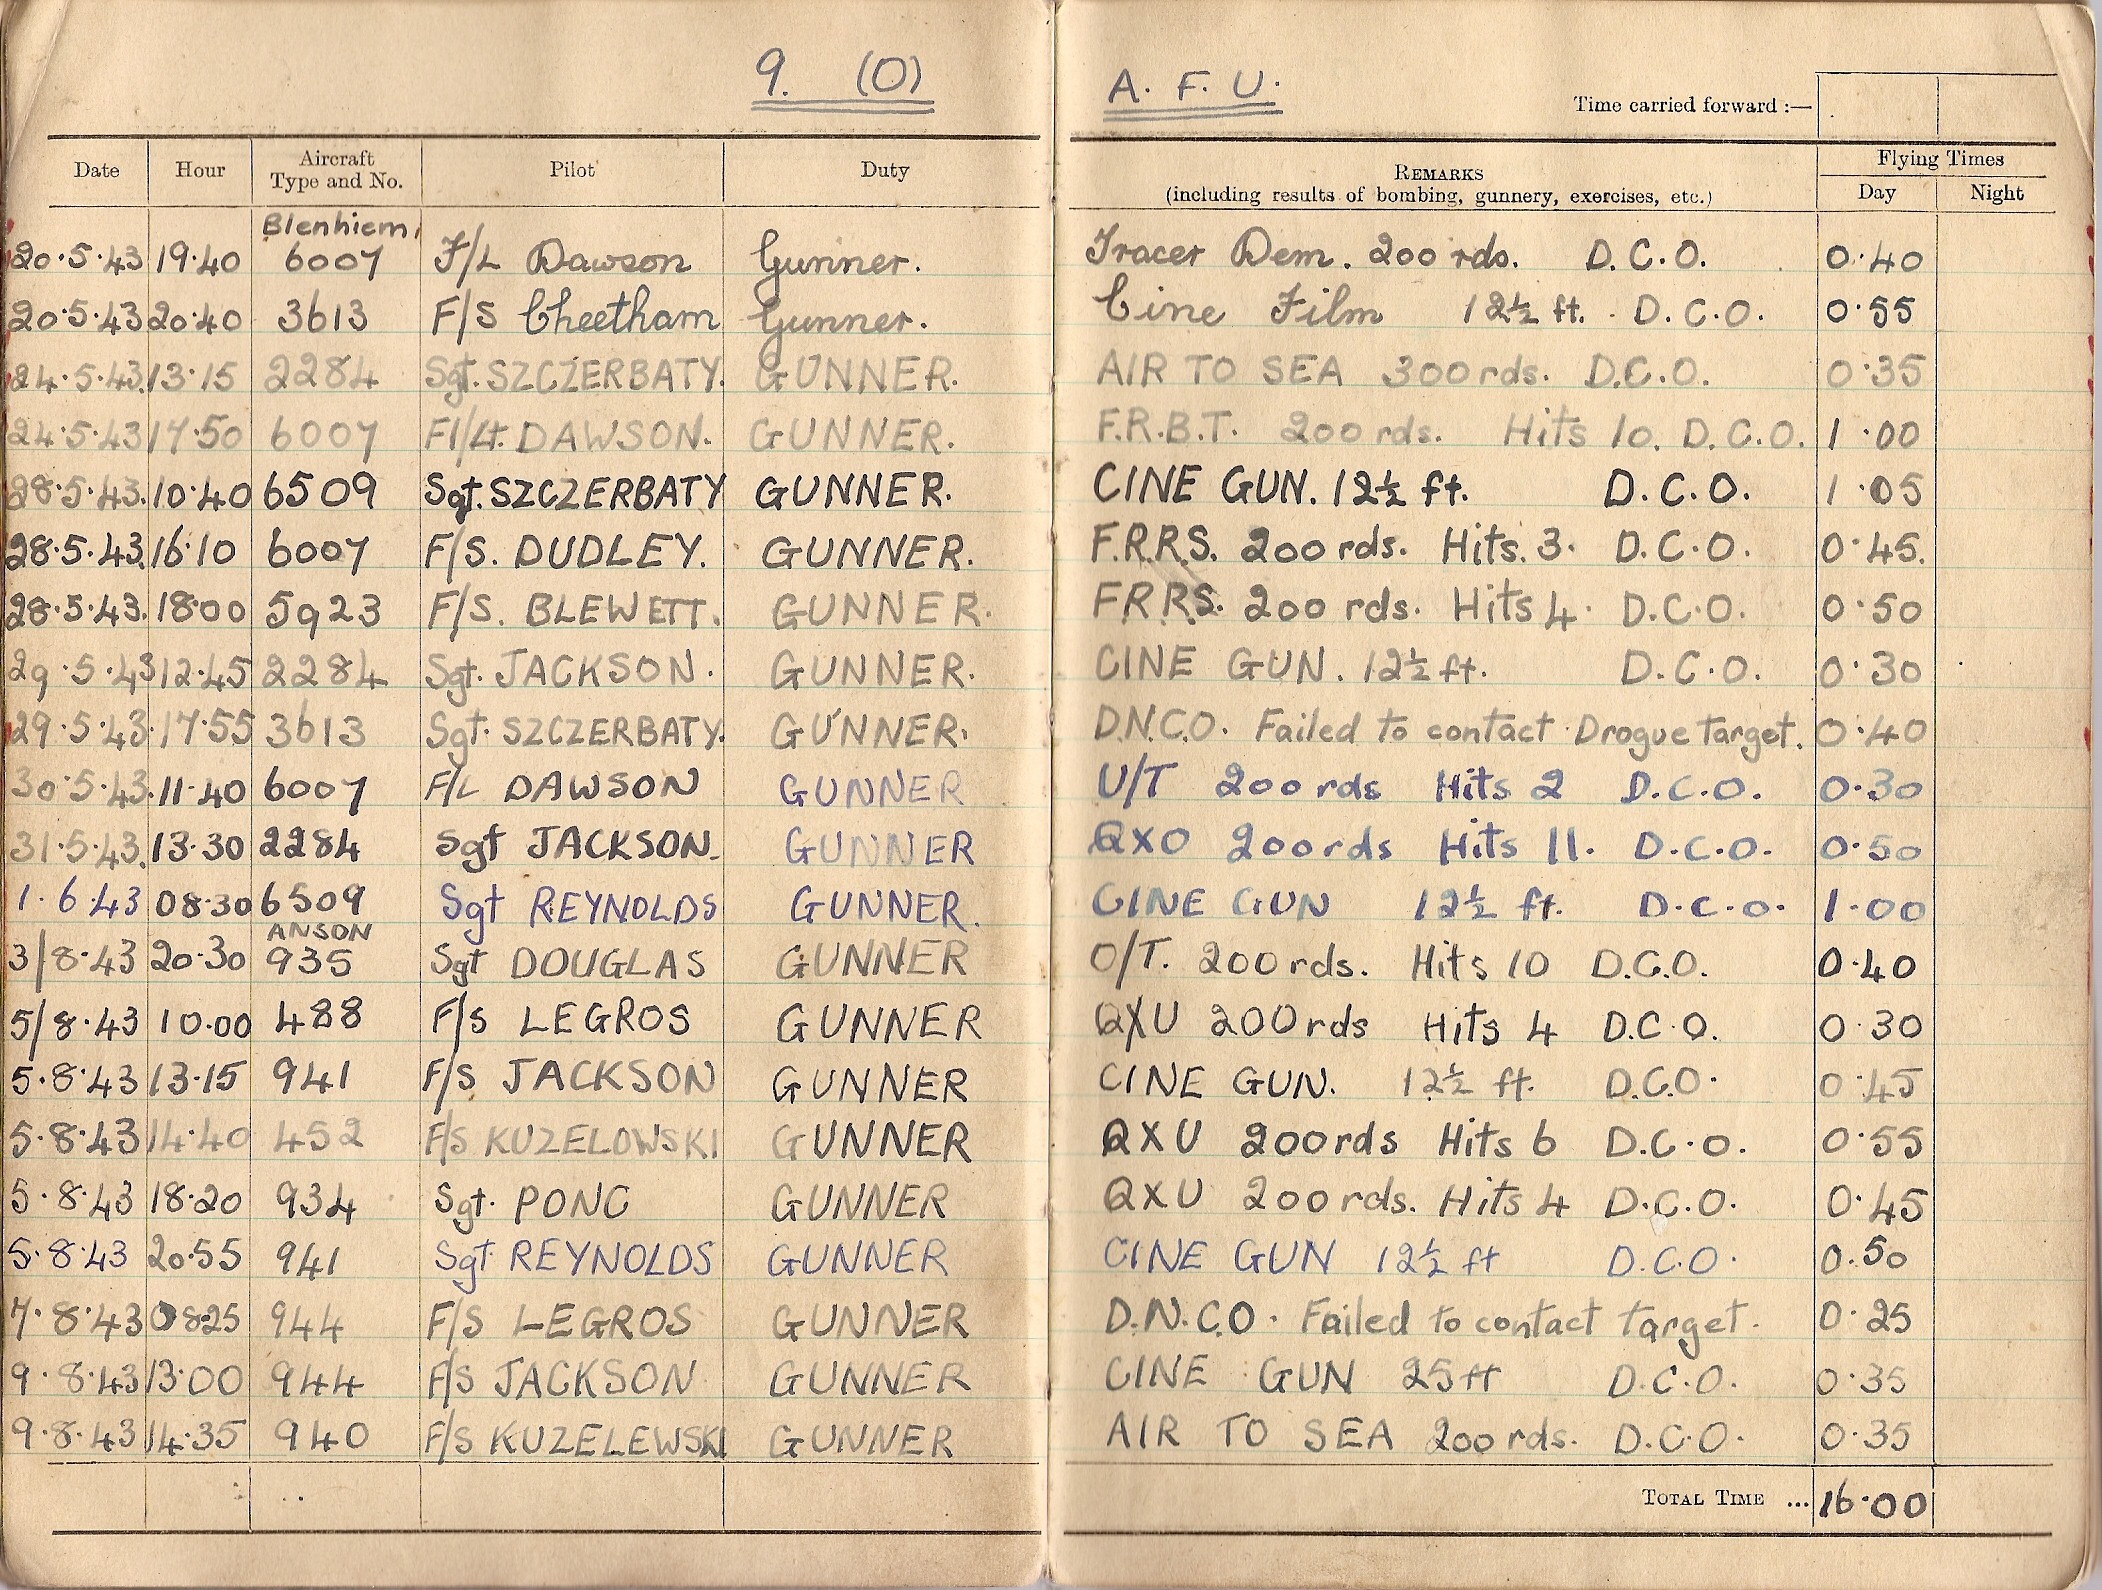 9. (O) A. F. U.
Time carried forward :—
Date Hour Aircraft Type and No. Pilot Duty REMARKS (including results of bombing, gunnery, exercises, etc.) Flying Times Day Night
Blenhiem
20.5.43 19.40 6007 F/L Dawson Gunner. Tracer Dem. 200 rds. D.C.O. 0.40
20.5.43 20.40 3613 F/S Cheetham Gunner. Cine Film 12½ ft. D.C.O. 0.55
24.5.43. 13.15 2284 Sgt. SZCZERBATY. GUNNER. AIR TO SEA 300 rds. D.C.O. 0.35
24.5.43 17.50 6007 Fl/Lt. DAWSON. GUNNER. F.R.B.T. 200 rds. Hits 10. D.C.O. 1.00
28.5.43. 10.40 6509 Sgt. SZCZERBATY GUNNER. CINE GUN. 12½ ft. D.C.O. 1.05
28.5.43. 16.10 6007 F/S. DUDLEY. GUNNER. F.R.R.S. 200 rds. Hits. 3. D.C.O. 0.45.
28.5.43. 18.00 5923 F/S. BLEWETT. GUNNER. F.R.R.S. 200 rds. Hits 4. D.C.O. 0.50
29.5.43 12.45 2284 Sgt. JACKSON. GUNNER. CINE GUN. 12½ ft. D.C.O. 0.30
29.5.43. 17.55 3613 Sgt. SZCZERBATY. GUNNER. D.N.C.O. Failed to contact Drogue target. 0.40
30.5.43. 11.40 6007 F/L DAWSON GUNNER U/T 200 rds Hits 2 D.C.O. 0.30
31.5.43. 13.30 2284 Sgt JACKSON. GUNNER QXO 200 rds Hits 11. D.C.O. 0.50
1.6.43 08.30 6509 Sgt REYNOLDS GUNNER. CINE GUN 12½ ft. D.C.O. 1.00
ANSON
3/8.43 20.30 935 Sgt DOUGLAS GUNNER O/T. 200 rds. Hits 10 D.C.O. 0.40
5/8.43 10.00 488 F/S LEGROS GUNNER QXU 200 rds Hits 4 D.C.O. 0.30
5.8.43 13.15 941 F/S JACKSON GUNNER CINE GUN. 12½ ft. D.C.O. 0.45
5.8.43 14.40 452 F/S KUZELOWSKI GUNNER QXU 200 rds Hits 6 D.C.O. 0.55
5.8.43 18.20 934 Sgt. PONC GUNNER QXU 200 rds. Hits 4 D.C.O. 0.45
5.8.43 20.55 941 Sgt REYNOLDS GUNNER CINE GUN 12½ ft D.C.O. 0.50
7.8.43 0825 944 F/S LEGROS GUNNER D.N.C.O. Failed to contact target. 0.25
9.8.43 13.00 944 F/S JACKSON GUNNER CINE GUN 25 ft D.C.O. 0.35
9.8.43 14.35 940 F/S KUZELEWSKI GUNNER AIR TO SEA 200 rds. D.C.O. 0.35
TOTAL TIME ... 16.00